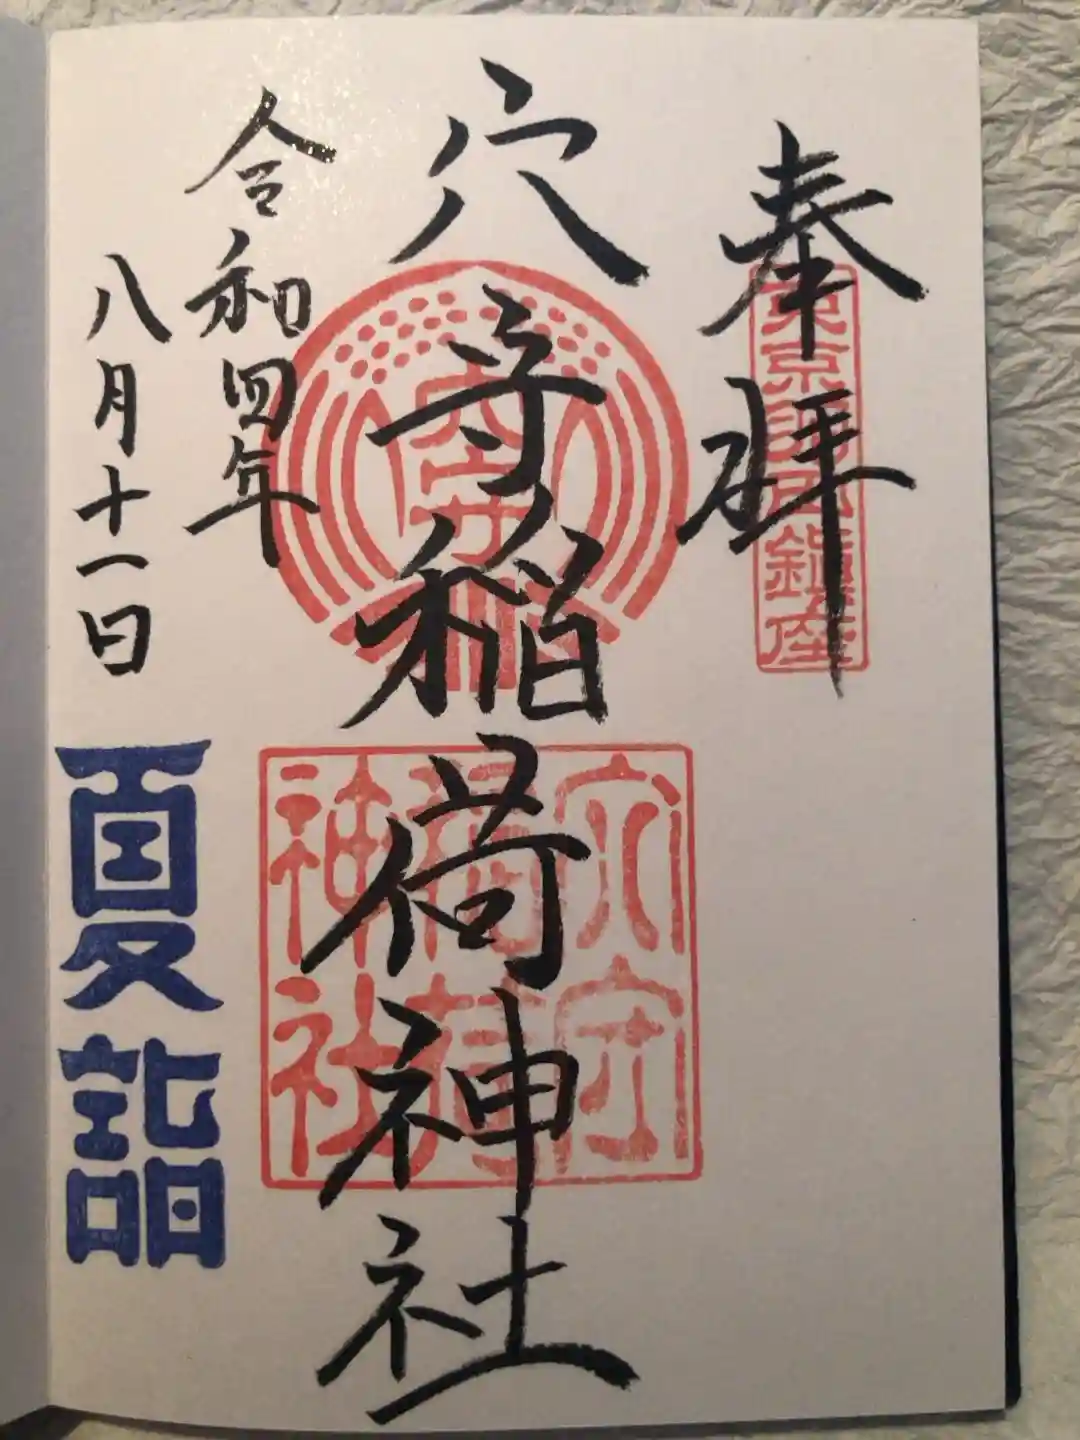 奉拝
東京鎮座
穴守稲荷神社
穴守
穴守
稲荷
神社
令和四年
八月十一日
夏詣